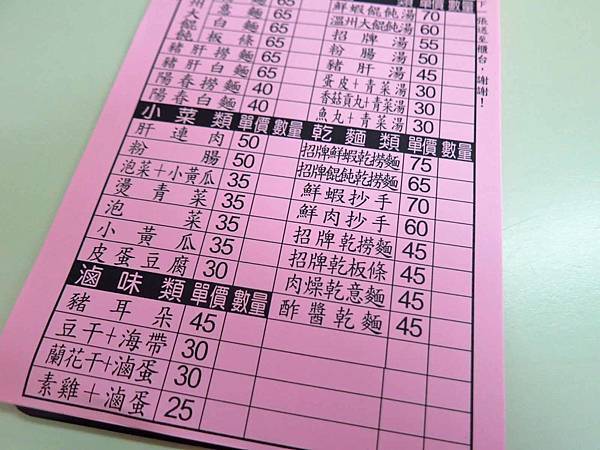 意麵 65
大白麵 65
餛飩板條 65
豬肝撈麵 65
豬肝白麵 65
陽春撈麵 40
陽春白麵 40
小菜類 單價 數量
肝連肉 50
粉腸 50
泡菜+小黃瓜 35
燙青菜 35
泡菜 35
小黃瓜 35
皮蛋豆腐 30
滷味類 單價 數量
豬耳朵 45
豆干+海帶 30
蘭花干+滷蛋 30
素雞+滷蛋 25
類 單價 數量
鮮蝦餛飩湯 70
溫州大餛飩湯 60
招牌湯 55
粉腸湯 50
豬肝湯 45
蛋皮+青菜湯 30
香菇貢丸+青菜湯 30
魚丸+青菜湯 30
乾麵類 單價 數量
招牌鮮蝦乾撈麵 75
招牌餛飩乾撈麵 65
鮮蝦抄手 70
鮮肉抄手 60
招牌乾撈麵 45
招牌乾板條 45
肉燥乾意麵 45
酢醬乾麵 45
張送至櫃台，謝謝！